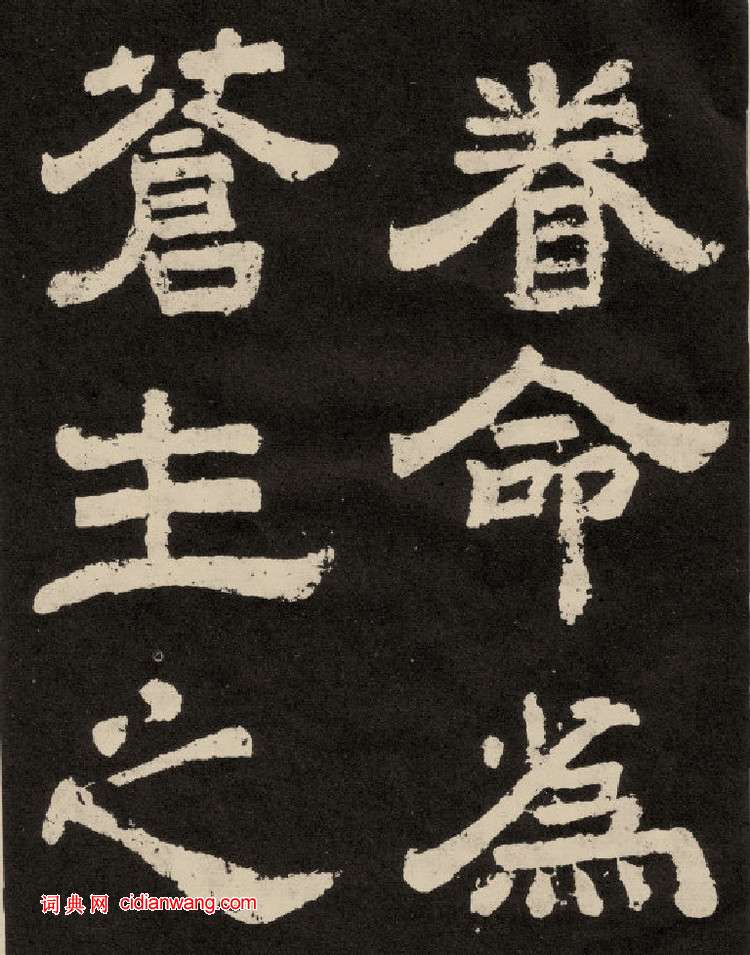 眷命為
蒼生之
词典网 cidianwang.com